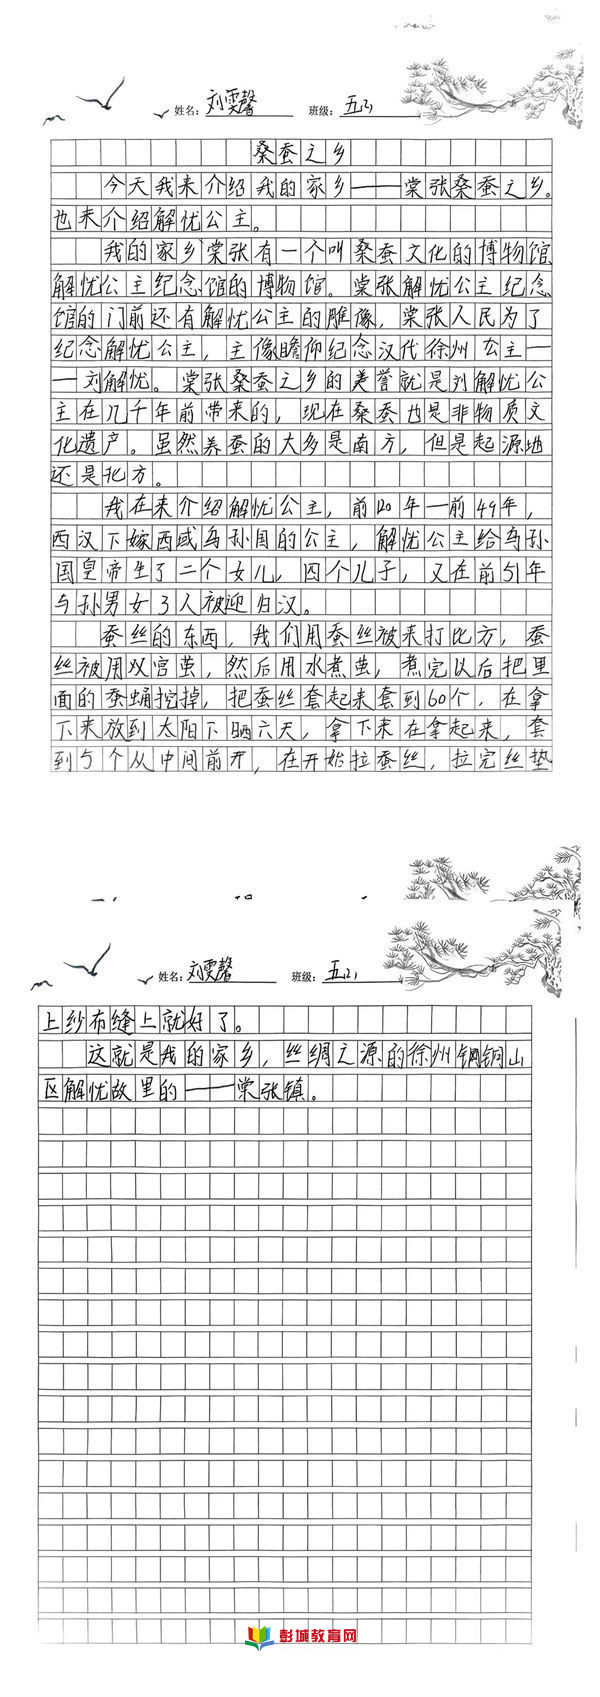 姓名：刘雯馨 班级：五（2）
桑蚕之乡
今天我来介绍我的家乡——棠张桑蚕之乡。
也来介绍解忧公主。
我的家乡棠张有一个叫桑蚕文化的博物馆
解忧公主纪念馆的博物馆。棠张解忧公主纪念
馆的门前还有解忧公主的雕像，棠张人民为了
纪念解忧公主，主像瞻仰纪念汉代徐州公主—
—刘解忧。棠张桑蚕之乡的美誉就是刘解忧公
主在几千年前带来的，现在桑蚕也是非物质文
化遗产。虽然养蚕的大多是南方，但是起源地
还是北方。
我在来介绍解忧公主，前120年—前49年，
西汉下嫁西域乌孙国的公主，解忧公主给乌孙
国皇帝生了二个女儿，四个儿子，又在前51年
与孙男女3人被迎归汉。
蚕丝的东西，我们用蚕丝被来打比方，蚕
丝被用双宫茧，然后用水煮茧，煮完以后把里
面的蚕蛹挖掉，把蚕丝套起来套到60个，在拿
下来放到太阳下晒六天，拿下来在拿起来，套
到5个从中间前开，在开始拉蚕丝，拉完丝垫
姓名：刘雯馨 班级：五（2）
上纱布缝上就好了。
这就是我的家乡，丝绸之源的徐州铜铜山
区解忧故里的——棠张镇。
彭城教育网